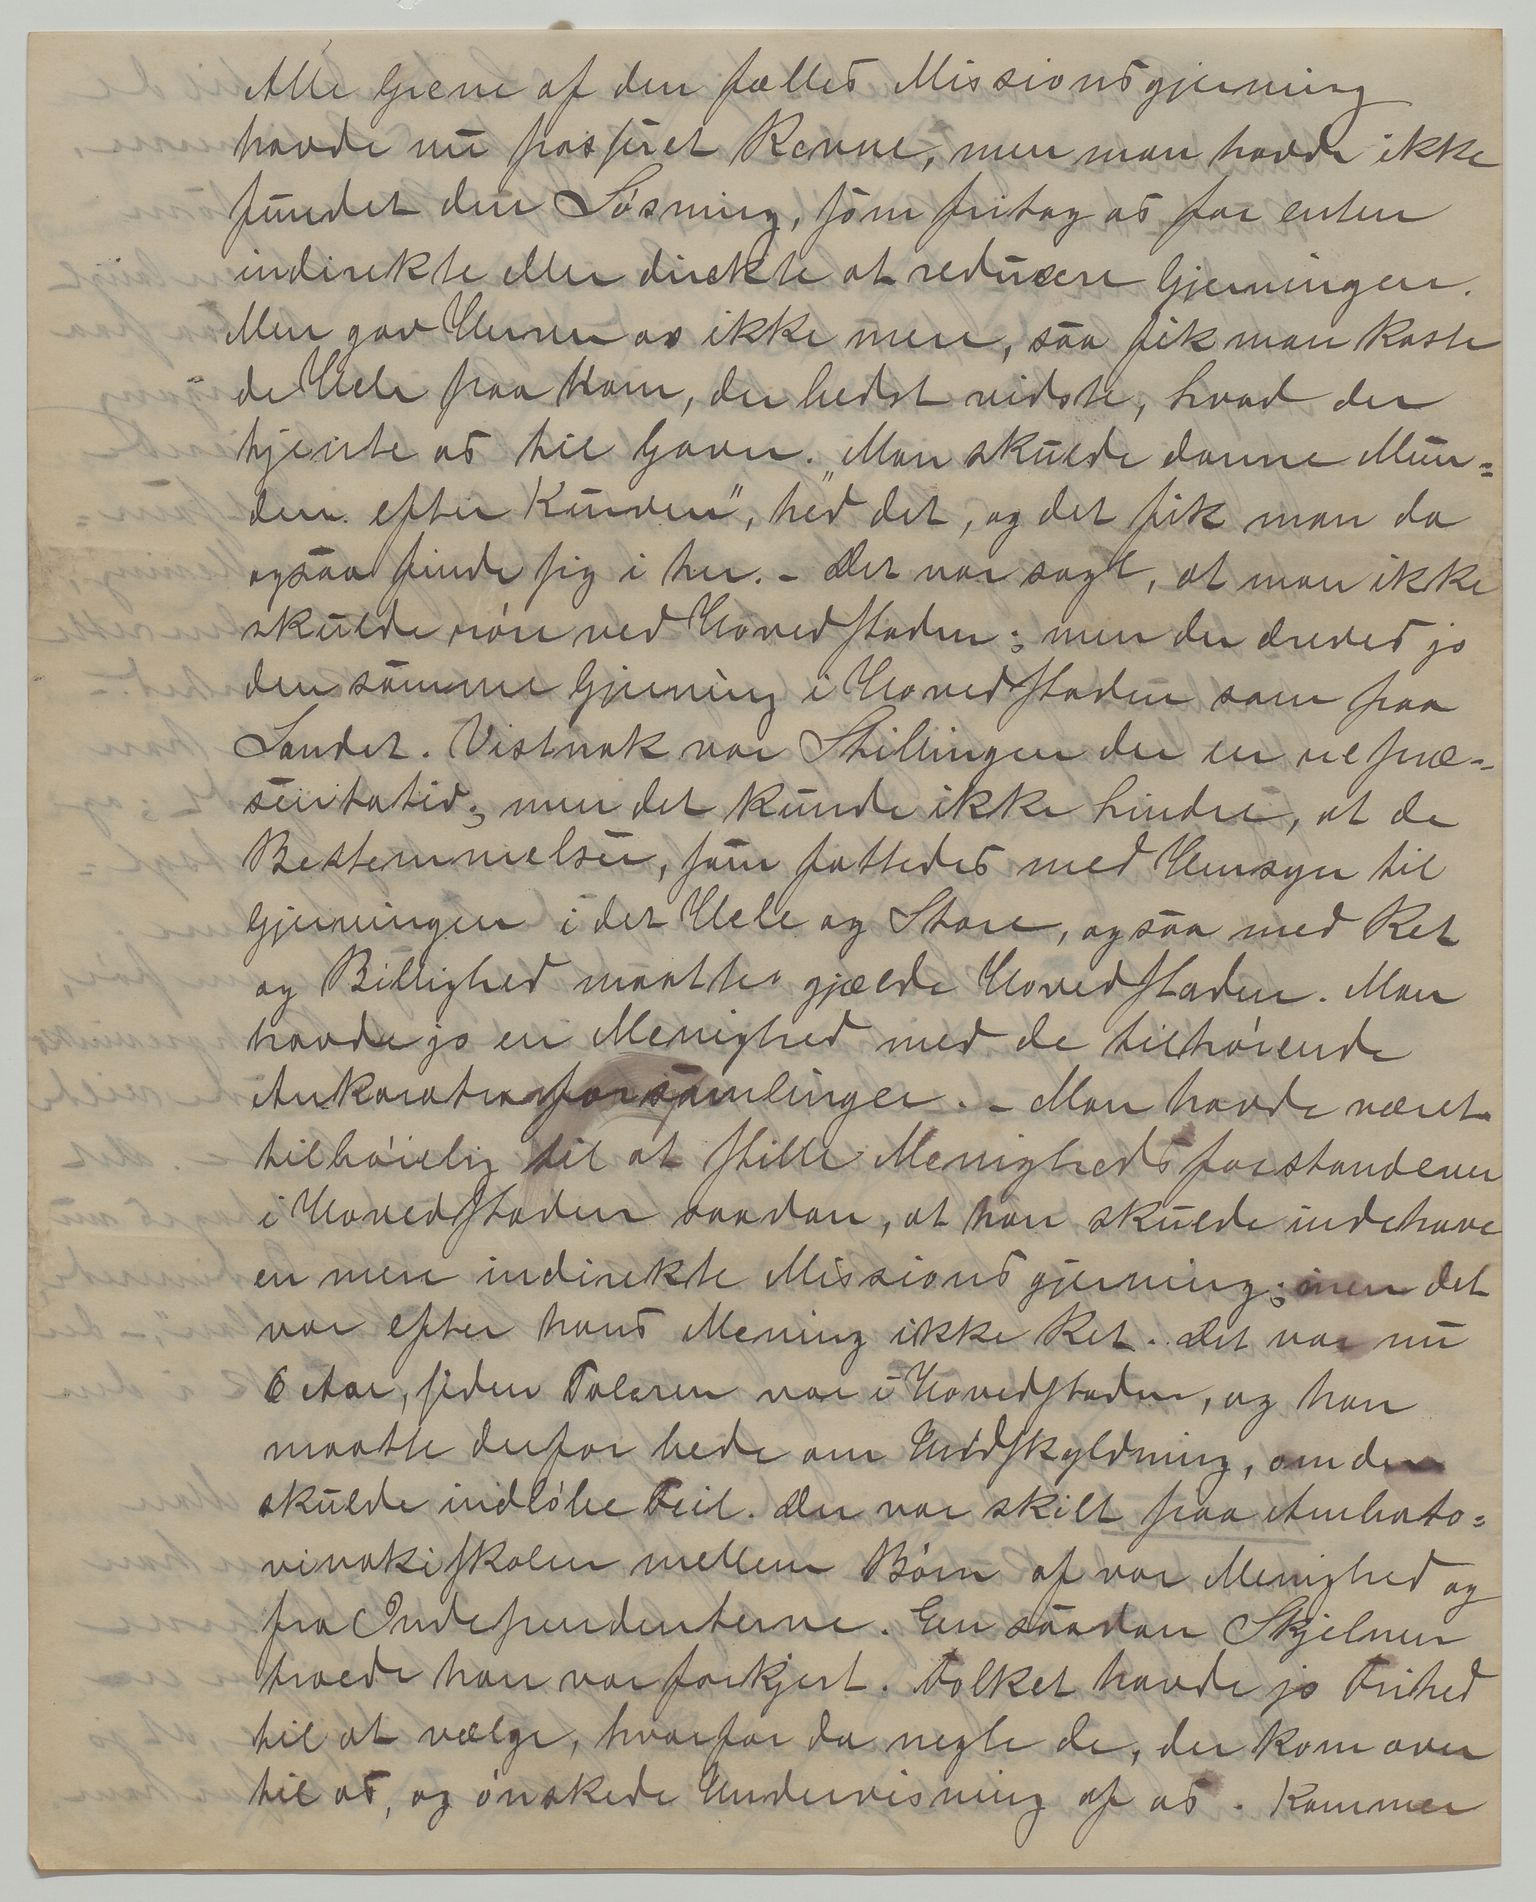 Alle Grene af den fælles Missionsgjerning
havde nu passeret Revue, men man havde ikke
fundet den Løsning, som fritog os for enten
indirekte eller direkte at reducere Gjerningen.
Men gav Herren os ikke mere, saa fik man kaste
de Hele paa Ham, der bedst vidste, hvad der
tjente os til Gavn. "Man skulde danne Mun=
den efter Kurven", hed det, og det fik man da
ogsaa finde sig i her. - Det var sagt, at man ikke
skulde røre ved Hovedstaden; men der dreves jo
den samme Gjerning i Hovedstaden som paa
Landet. Vistnok var Stillingen der en repræ=
sentativ; men det kunde ikke hindre, at de
Bestemmelser, som fattedes med Hensyn til
Gjerningen i det Hele og Store, ogsaa med Ret
og Billighed maatte gjælde Hovedstaden. Man
havde jo en Menighed med de tilhørende
Ankaratraforsamlinger. - Man havde været
tilbøielig til at stille Menighedsforstanderen
i Hovedstaden saadan, at han skulde indehave
en mere indirekte Missionsgjerning; men det
var efter hans Mening ikke Ret. Det var nu
6 Aar, siden Taleren var i Hovedstaden, og han
maatte derfor bede om Undskyldning, om der
skulde indløbe Feil. Der var skilt paa Ambato=
vinakiskolen mellem Børn af vor Menighed og
fra Independenterne. En saadan Skjelnen
troede han var forkjert. Folket havde jo Frihed
til at vælge, hvorfor da negte de, der kom over
til os, og ønskede Undervisning af os. Kommer